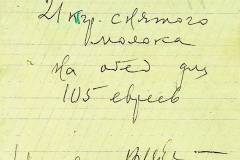 21 кгр. снятого
молока
на обед для
105 евреев